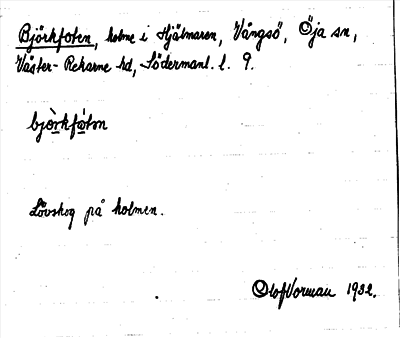 Björkfoten, holme i Hjälmaren, Vångsö, Öja sn,
Väster-Rekarne hd, Södermanl. l. 9.
bjòrkfòtɷn
Lövskog på holmen.
Olof Vorman 1932.